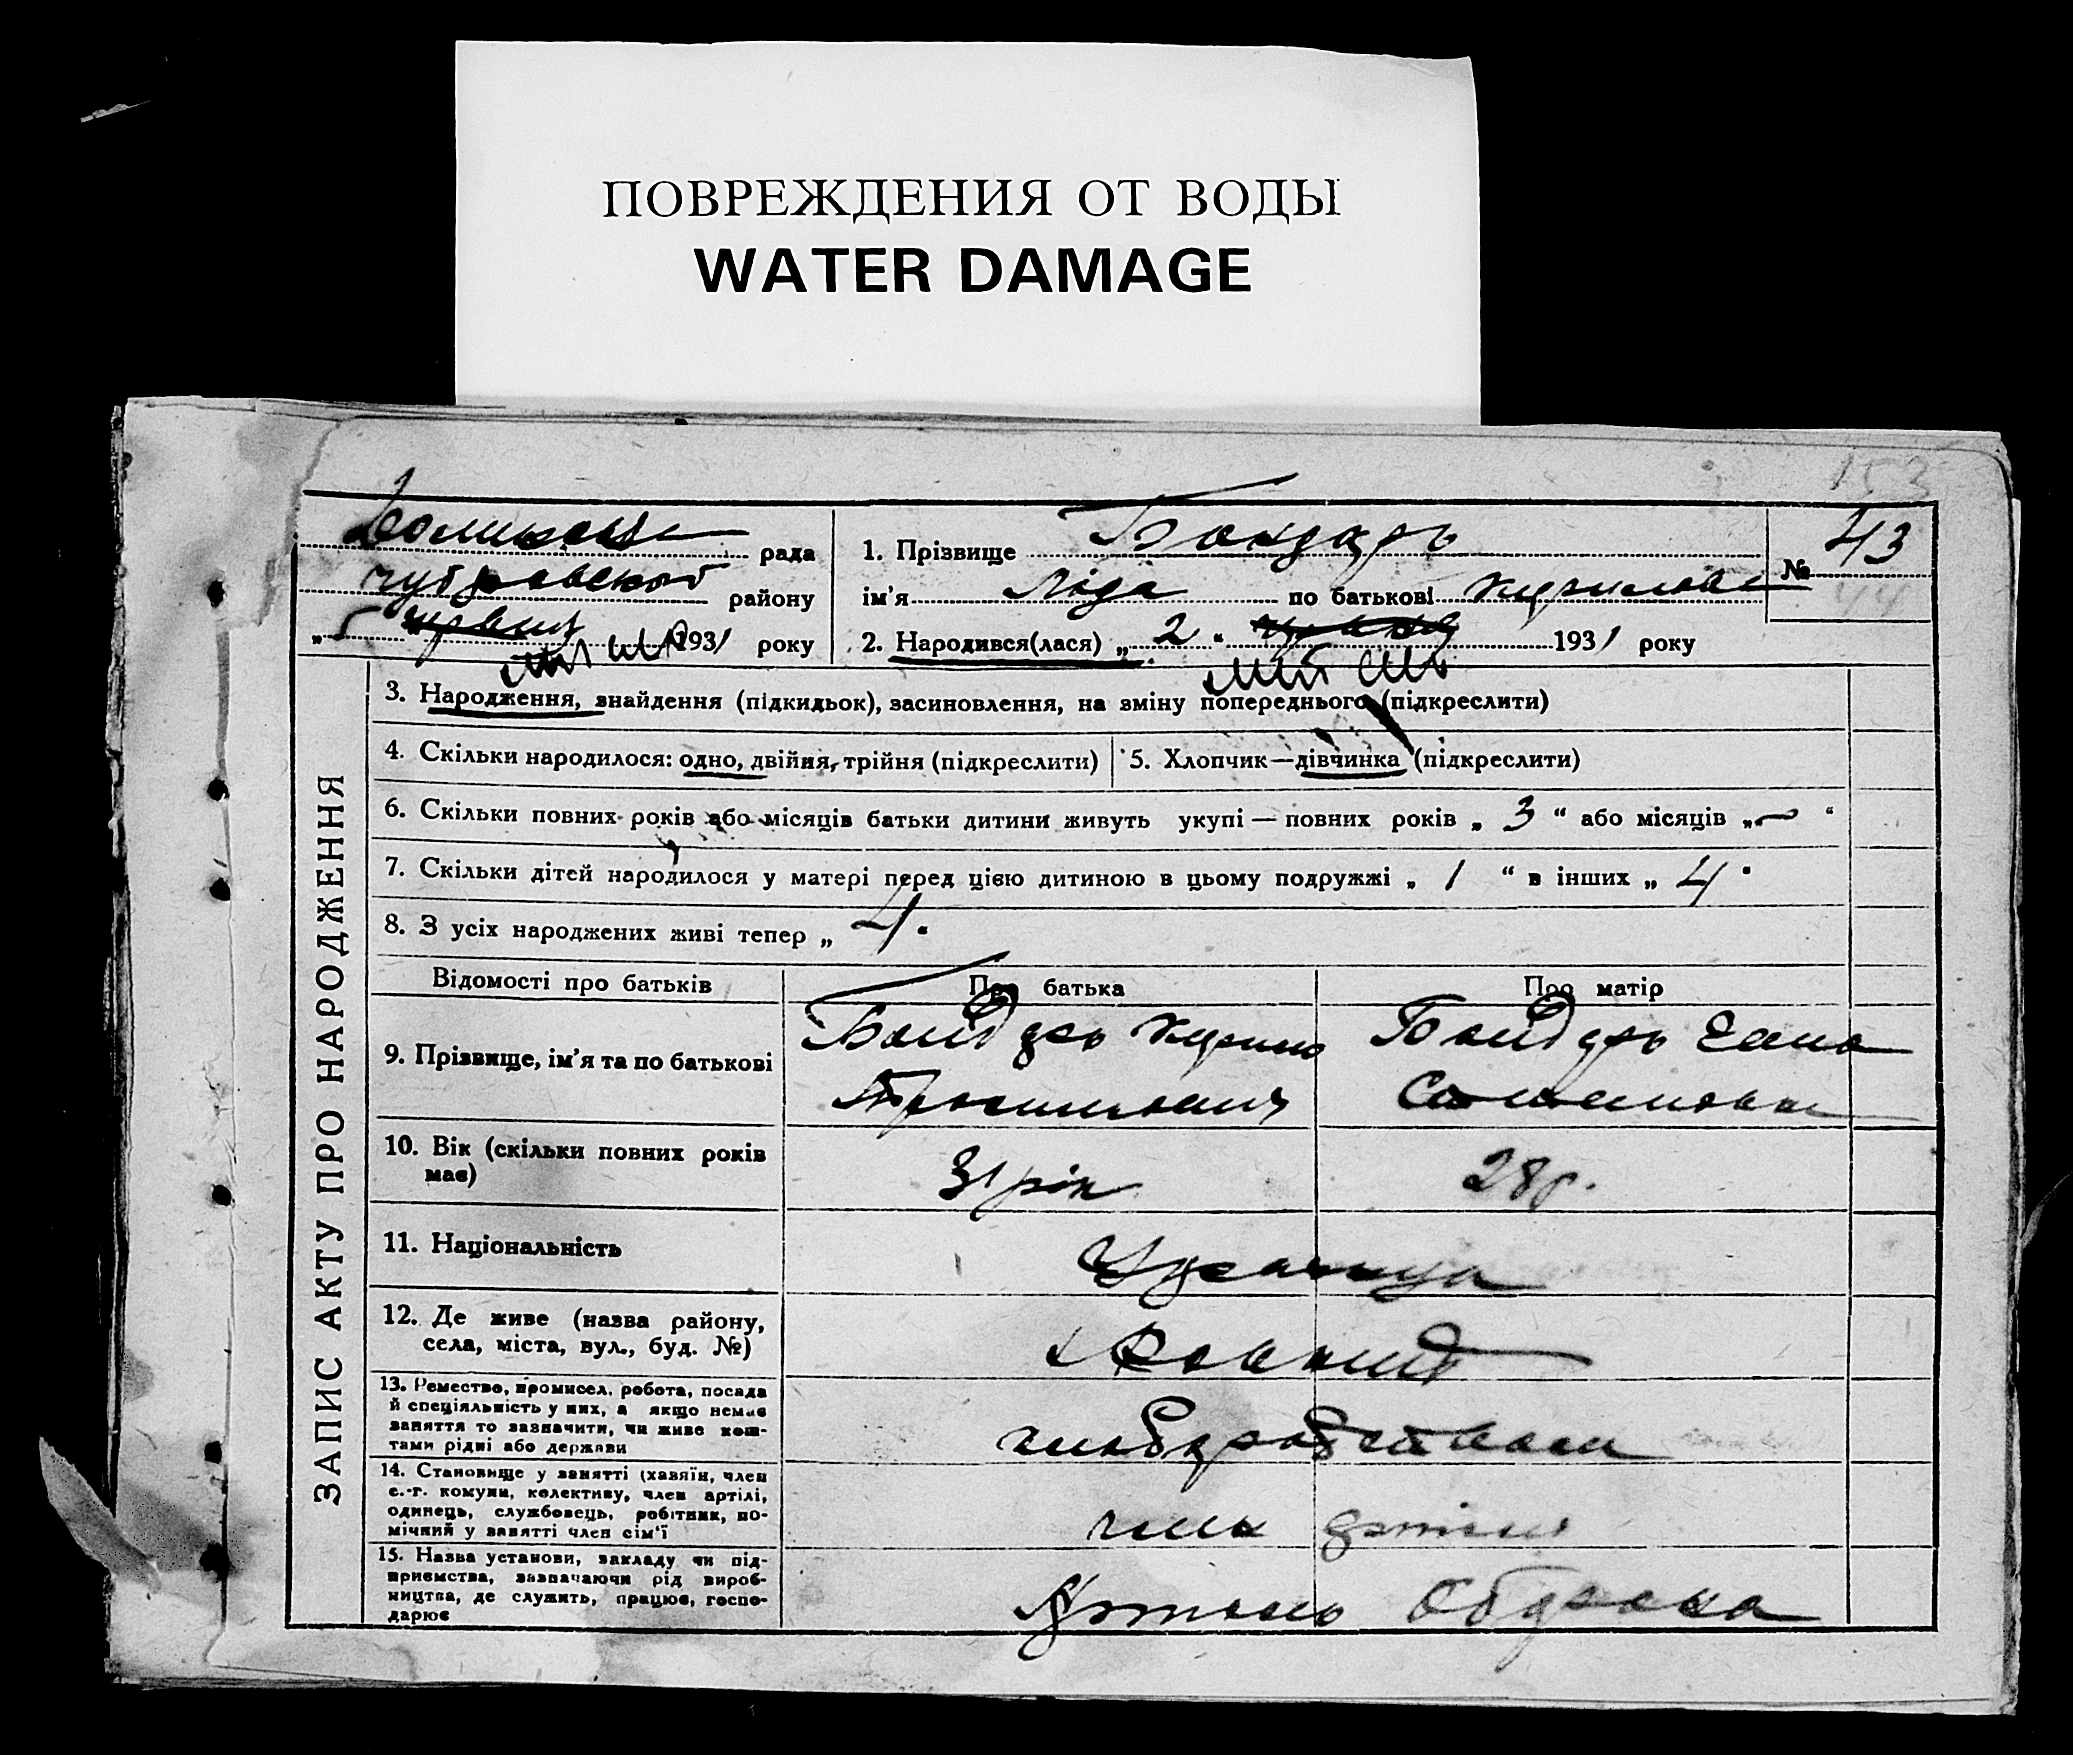 ПОВРЕЖДЕНИЯ ОТ ВОДЫ
WATER DAMAGE
153
рада
району
1931 року
1. Прізвище Бондарь
№ 43
44
ім'я Ліда по батькові Кирилова
2. Народився(лася) „ 2 “ 1931 року
ЗАПИС АКТУ ПРО НАРОДЖЕННЯ
3. Народження, знайдення (підкидьок), засиновлення, на зміну попереднього (підкреслити)
4. Скільки народилося: одно, двійня, трійня (підкреслити)
5. Хлопчик—дівчинка (підкреслити)
6. Скільки повних років або місяців батьки дитини живуть укупі — повних років „ 3 “ або місяців „ — “
7. Скільки дітей народилося у матері перед цією дитиною в цьому подружжі „ 1 “ в інших „ 4 "
8. З усіх народжених живі тепер „ 4 "
Відомості про батьків
Про батька
Про матір
9. Прізвище, ім'я та по батькові
Бондарь Кирило
Бондарь
10. Вік (скільки повних років
має)
31 рік
28 р.
11. Національність
Українці
12. Де живе (назва району,
села, міста, вул., буд. №)
13. Ремество, промисел, робота, посада
й спеціяльність у них, а якщо немає
заняття то зазначити, чи живе кош-
тами рідні або держави
хлібаробством
14. Становище у занятті (хазяїн, член
с.-г. комуни, колективу, член артілі,
одинець, службовець, робітник, по-
мічний у занятті член сім'ї
член артілі
15. Назва установи, закладу чи під-
приємства, зазначаючи рід вироб-
ництва, де служить, працює, госпо-
дарює
Артіль